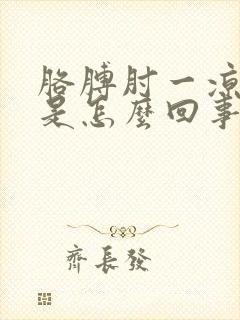 胳膊肘一凉
是怎麼回事
齊長發